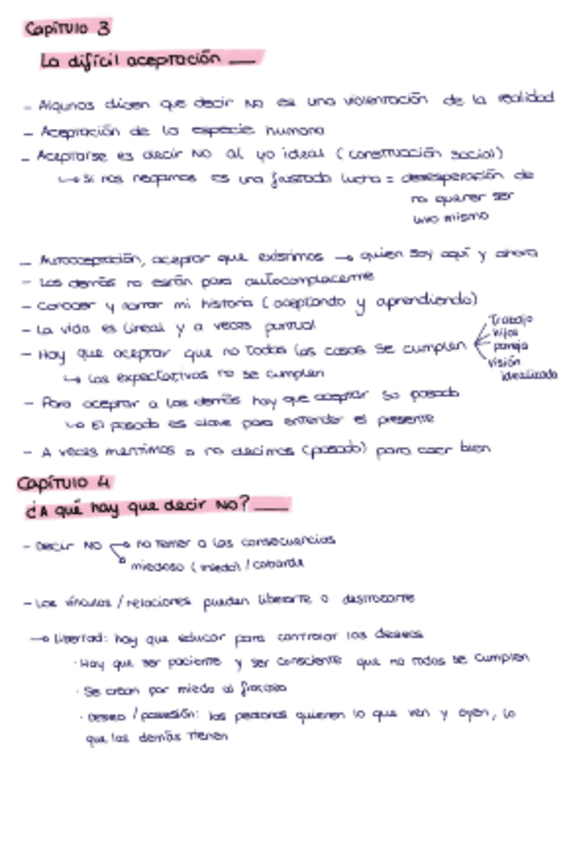 Capítulo 3
La difícil aceptación
- Algunos dicen que decir NO es una violentación de la realidad
- Aceptación de la especie humana
- Aceptarse es decir NO al yo ideal (construcción social)
↳ Si nos negamos es una frustrada lucha = desesperación de
no querer ser
uno mismo
- Autoaceptación, aceptar que existimos → quien soy aquí y ahora
- Los demás no están para autocomplacerme
- Conocer y narrar mi historia (aceptando y aprendiendo)
- La vida es lineal y a veces puntual
- Hay que aceptar que no todas las cosas se cumplen
Trabajo
hijos
pareja
visión
idealizada
↳ Las expectativas no se cumplen
- Para aceptar a los demás hay que aceptar su pasado
↳ El pasado es clave para entender el presente
- A veces mentimos o no decimos (pasado) para caer bien
Capítulo 4
¿A qué hay que decir NO?
- Decir NO → no temer a las consecuencias
miedoso (miedo) / cobarde
- Los vínculos / relaciones pueden liberarte o destrozarte
→ libertad: hay que educar para controlar los deseos
· Hay que ser paciente y ser consciente que no todos se cumplen
· Se crean por miedo al fracaso
· Deseo / posesión: las personas quieren lo que ven y oyen, lo
que los demás tienen